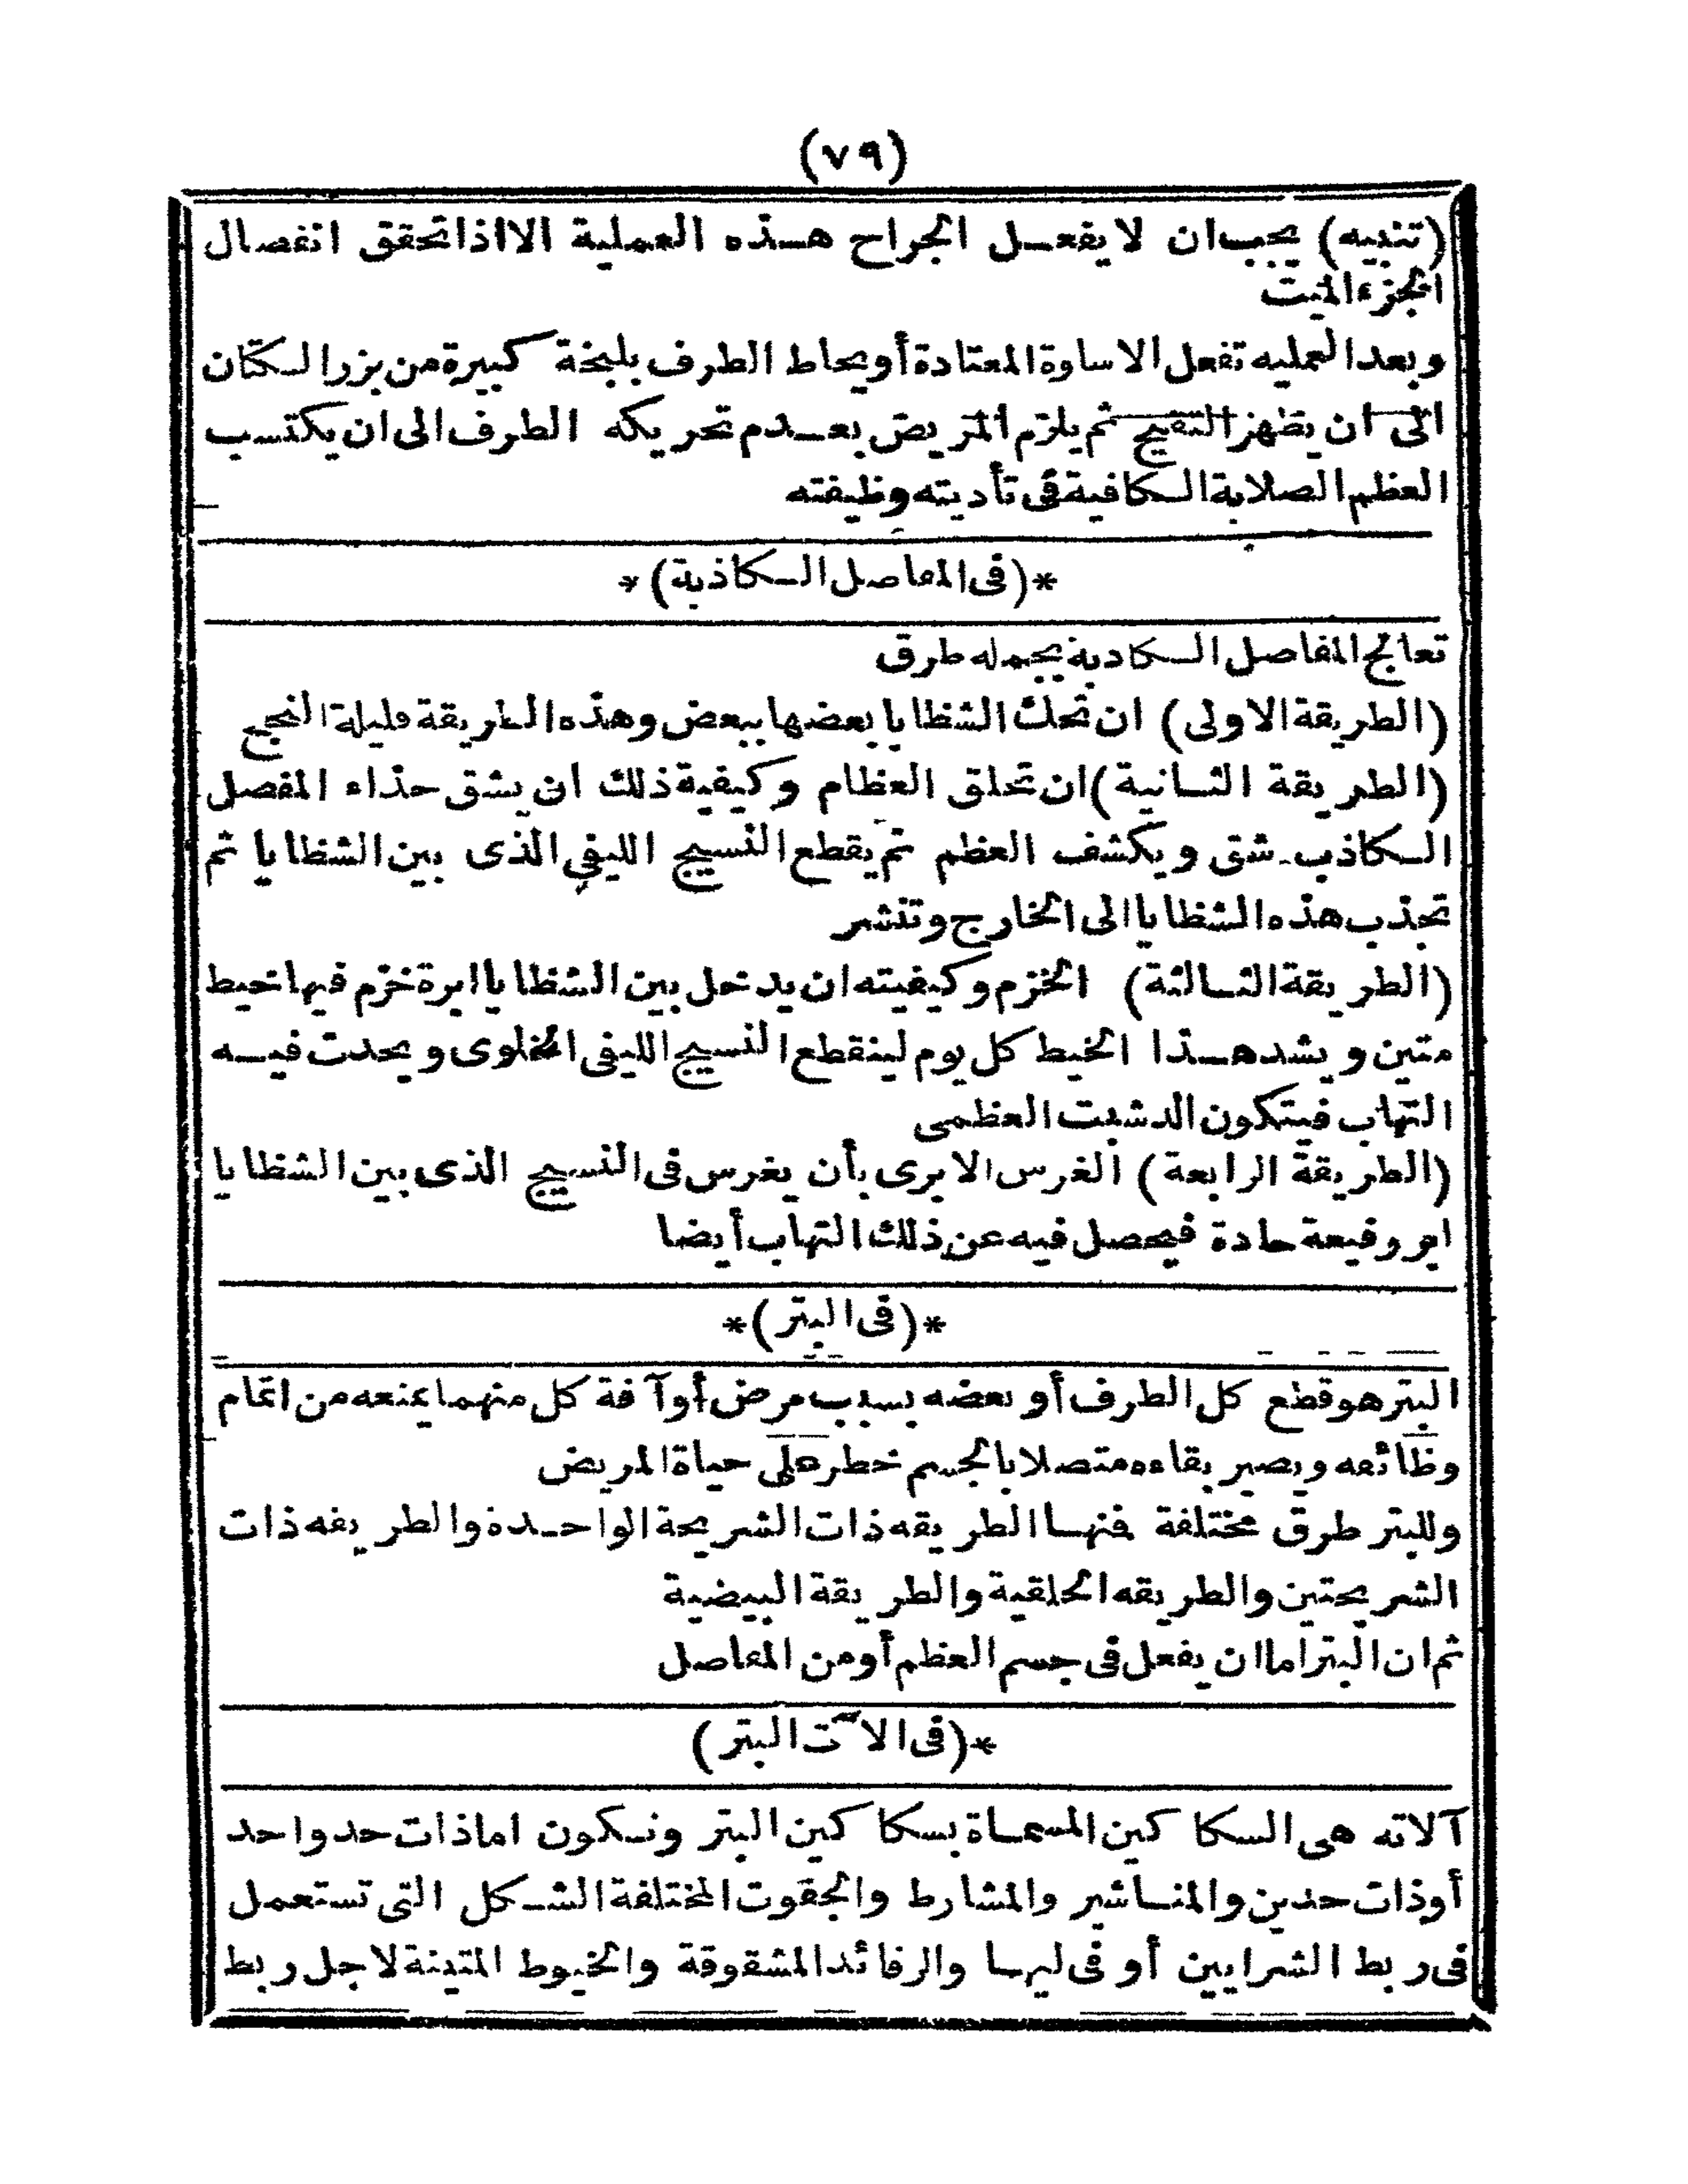 (٧٩)
(تنبيه) يجب ان لا يفعل الجراح هذه العملية الا اذا تحقق انفصال
الجزء الميت
وبعد العمليه تفعل الاساوة المعتادة أو يحاط الطرف بلبخة كبيرة من بزر الكتان
الى ان يظهر التقيح ثم يلزم المريض بعدم تحريكه الطرف الى ان يكتسب
العظم الصلابة الكافية فى تأديته وظيفته
*(فى المفاصل الكاذبة)*
تعالج المفاصل الكاذبة بجمله طرق
(الطريقة الاولى) ان تحك الشظايا بعضها ببعض وهذه الطريقة قليلة النجح
(الطريقة الثانية) ان تحلق العظام وكيفية ذلك ان يشق حذاء المفصل
الكاذب شق ويكشف العظم ثم يقطع النسيج الليفى الذى بين الشظايا ثم
تجذب هذه الشظايا الى الخارج وتنشر
(الطريقة الثالثة) الخزم وكيفيته ان يدخل بين الشظايا ابرة خزم فيها خيط
متين ويشد هذا الخيط كل يوم لينقطع النسيج الليفى الخلوى ويحدث فيه
التهاب فيتكون الدشبت العظمى
(الطريقة الرابعة) الغرس الابرى بأن يغرس فى النسيج الذى بين الشظايا
ابر رفيعة حادة فيحصل فيه عن ذلك التهاب أيضا
*(فى البتر)*
البتر هو قطع كل الطرف أو بعضه بسبب مرض أو آفة كل منهما يمنعه من اتمام
وظائعه ويصير بقاءه متصلا بالجسم خطر على حياة المريض
وللبتر طرق مختلفة فنها الطريقه ذات الشريحة الواحدة والطريقه ذات
الشريحتين والطريقه الحلقية والطريقة البيضية
ثم ان البتر اما ان يفعل فى جسم العظم أو من المفاصل
*(فى الآت البتر)
آلاته هى السكاكين المسماة بسكاكين البتر وتكون اما ذات حد واحد
أو ذات حدين والمناشير والمشارط والجفوت المختلفة الشكل التى تستعمل
فى ربط الشرايين أو فى ليها والرفائد المشقوقة والخيوط المتينة لاجل ربط